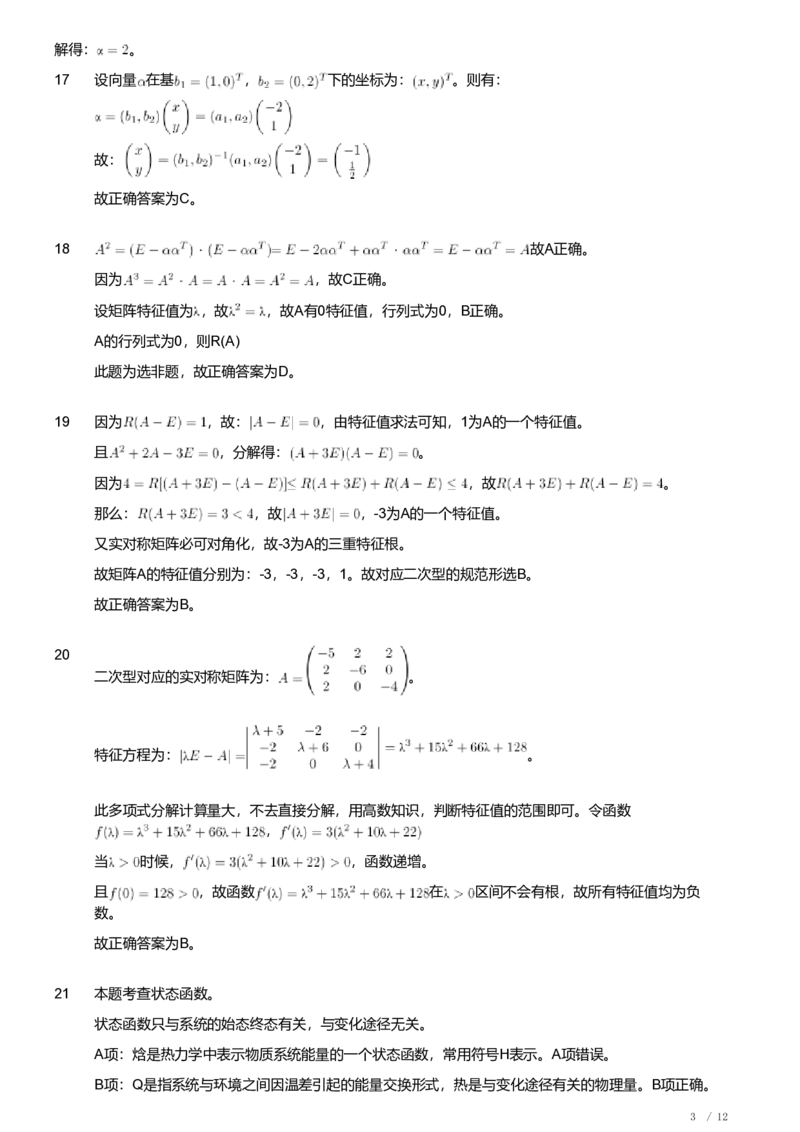 解得：α = 2。
17 设向量α在基b₁ = (1,0)ᵀ，b₂ = (0,2)ᵀ下的坐标为：(x,y)ᵀ。则有：
α = (b₁,b₂)(x y) = (a₁,a₂)(−2 1)
故：(x y) = (b₁,b₂)⁻¹(a₁,a₂)(−2 1) = (−1 1/2)
故正确答案为C。
18 A² = (E − ααᵀ) · (E − ααᵀ)= E − 2ααᵀ + ααᵀ · ααᵀ = E − ααᵀ = A故A正确。
因为A³ = A² · A = A · A = A² = A，故C正确。
设矩阵特征值为λ，故λ² = λ，故A有0特征值，行列式为0，B正确。
A的行列式为0，则R(A)
此题为选非题，故正确答案为D。
19 因为R(A − E) = 1，故：|A − E| = 0，由特征值求法可知，1为A的一个特征值。
且A² + 2A − 3E = 0，分解得：(A + 3E)(A − E) = 0。
因为4 = R[(A + 3E) − (A − E)]≤ R(A + 3E) + R(A − E) ≤ 4，故R(A + 3E) + R(A − E) = 4。
那么：R(A + 3E) = 3 < 4，故|A + 3E| = 0，-3为A的一个特征值。
又实对称矩阵必可对角化，故-3为A的三重特征根。
故矩阵A的特征值分别为：-3，-3，-3，1。故对应二次型的规范形选B。
故正确答案为B。
20 二次型对应的实对称矩阵为：A = (−5 2 2
2 −6 0
2 0 −4)。
特征方程为：|λE − A| = |λ + 5 −2 −2
−2 λ + 6 0
−2 0 λ + 4| = λ³ + 15λ² + 66λ + 128。
此多项式分解计算量大，不去直接分解，用高数知识，判断特征值的范围即可。令函数
f(λ) = λ³ + 15λ² + 66λ + 128，f′(λ) = 3(λ² + 10λ + 22)
当λ > 0时候，f′(λ) = 3(λ² + 10λ + 22) > 0，函数递增。
且f(0) = 128 > 0，故函数f′(λ) = λ³ + 15λ² + 66λ + 128在λ > 0区间不会有根，故所有特征值均为负
数。
故正确答案为B。
21 本题考查状态函数。
状态函数只与系统的始态终态有关，与变化途径无关。
A项：焓是热力学中表示物质系统能量的一个状态函数，常用符号H表示。A项错误。
B项：Q是指系统与环境之间因温差引起的能量交换形式，热是与变化途径有关的物理量。B项正确。
3 / 12